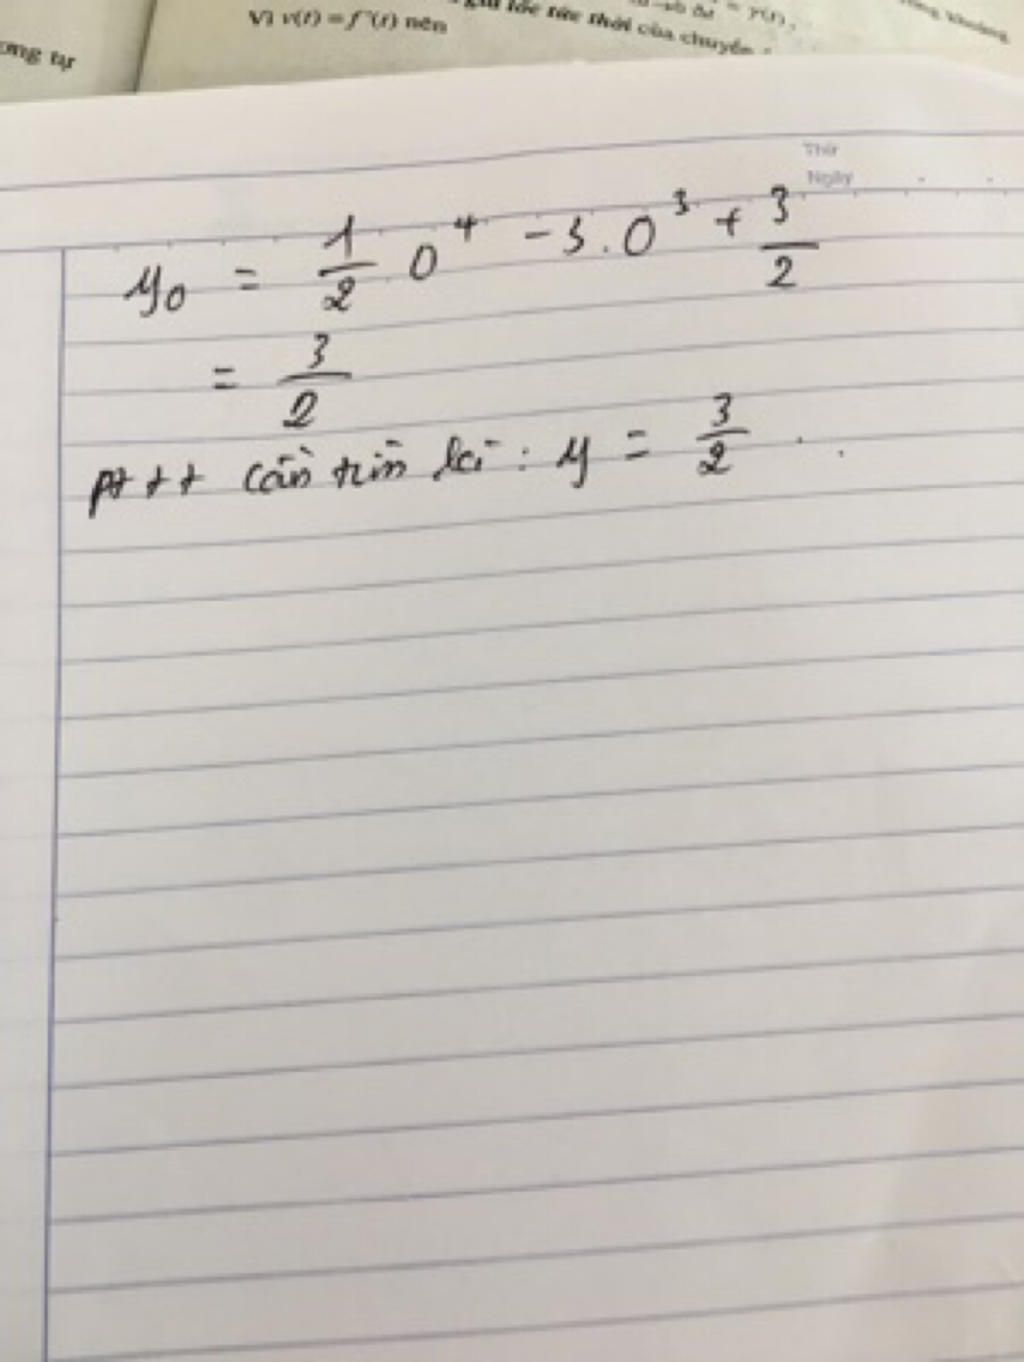 ơng tự
Vì v(t) = f'(t) nên
gia tốc tức thời của chuyển
= γ(t),
Thứ
Ngày
y₀ = 1/2 . 0⁴ - 3 . 0³ + 3/2
= 3/2
pttt cần tìm là : y = 3/2 .